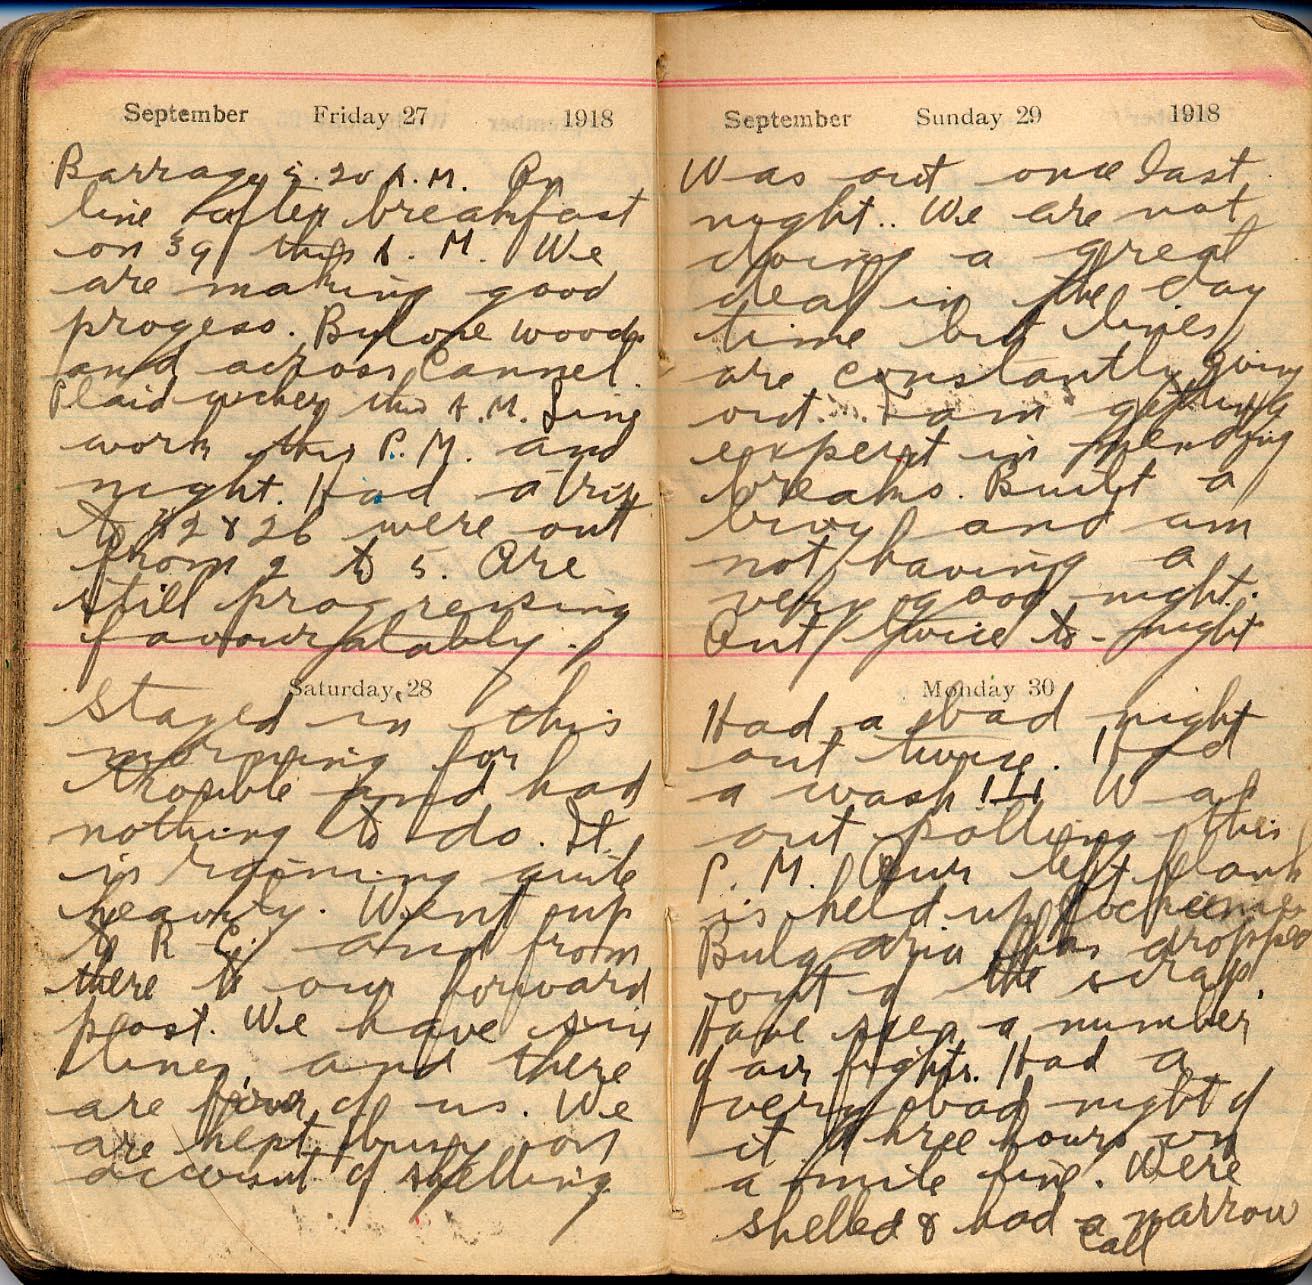 September Friday 27 1918
Barrage 5.20 A.M. On
line after breakfast
on 39 this A.M. We
are making good
progess. Bulone woods
and across Cannel.
Plaid this A.M. Line
work this P.M. and
night. Had a trip
to 12 & 26 were out
from 2 to 5. Are
still progressing
favourably.
Saturday, 28
Stayed in this
morning for
trouble and had
nothing to do. It
is raining quite
heavily. Went up
to R E and from
there to our forward
post. We have six
lines and there
are four of us. We
are kept busy on
account of shelling
September Sunday 29 1918
Was out once last
night.. We are not
doing a great
deal in the day
time but lines
are constantly going
out. I am getting
expert in mending
breaks. Built a
bivy and am
not having a
very good night.
Out twice to-night
Monday 30
Had a bad night
out twice. Had
a wash!!! Was
out this
P.M. Our left flank
is held up
Bulgaria has dropped
out of the scrap.
Have seen a number
of air fights. Had a
very bad night of
it three hours on
a mile line. Were
shelled & had a narrow
call